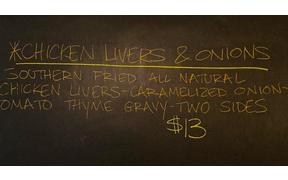 *CHICKEN LIVERS & ONIONS
SOUTHERN FRIED ALL NATURAL
CHICKEN LIVERS-CARAMELIZED ONION-
TOMATO THYME GRAVY-TWO SIDES
$13